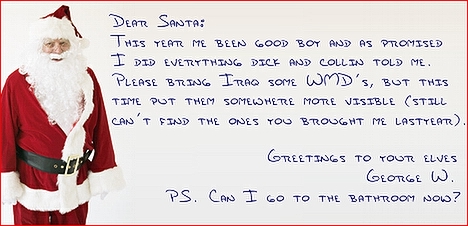 Dear Santa:
This year me been good boy and as promised
I did everything dick and collin told me.
Please bring Iraq some WMD's, but this
time put them somewhere more visible (still
can't find the ones you brought me lastyear).
Greetings to your elves
George W.
PS. Can I go to the bathroom now?